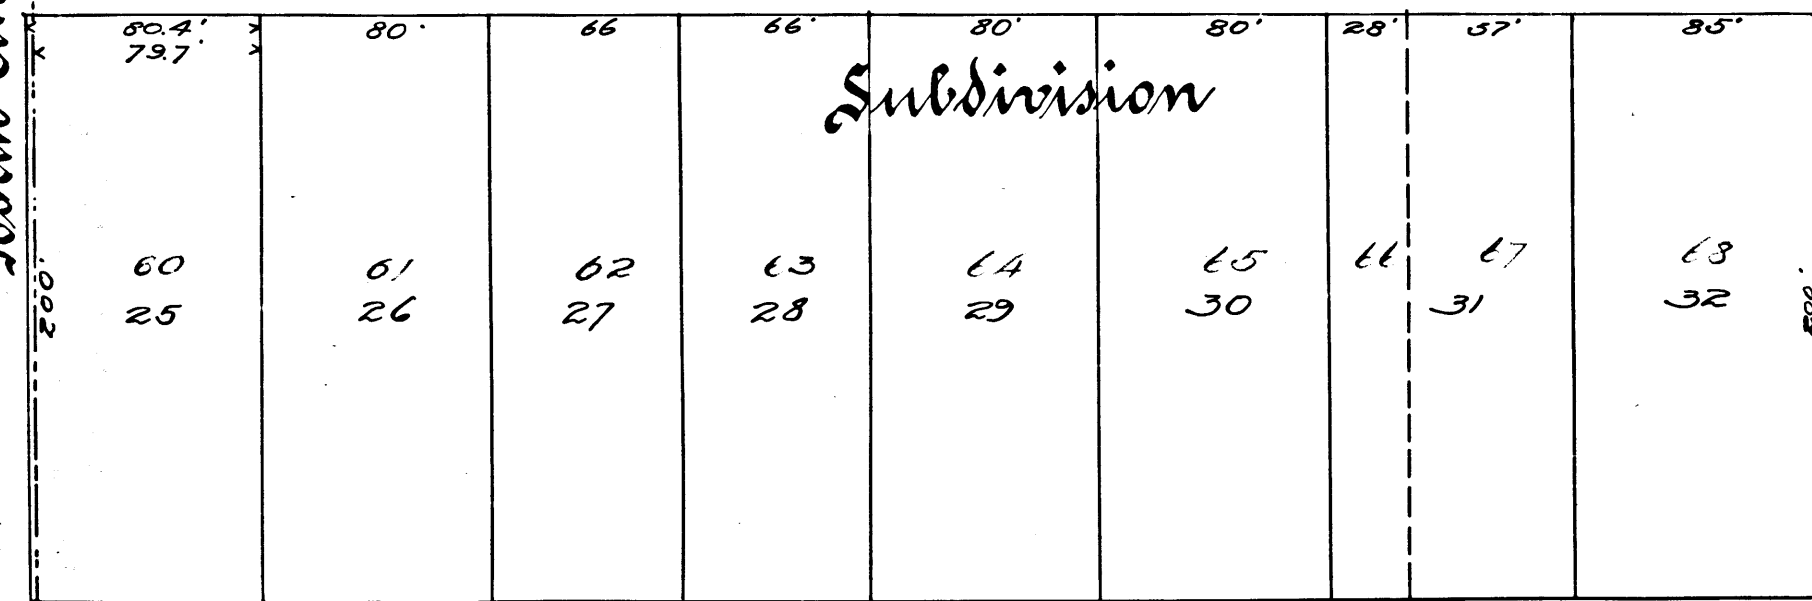 80.4' 80' 66 66' 80' 80' 28' 57' 85'
79.7'
Subdivision
60 61 62 63 64 65 66 67 68
25 26 27 28 29 30 31 32
200'
200'